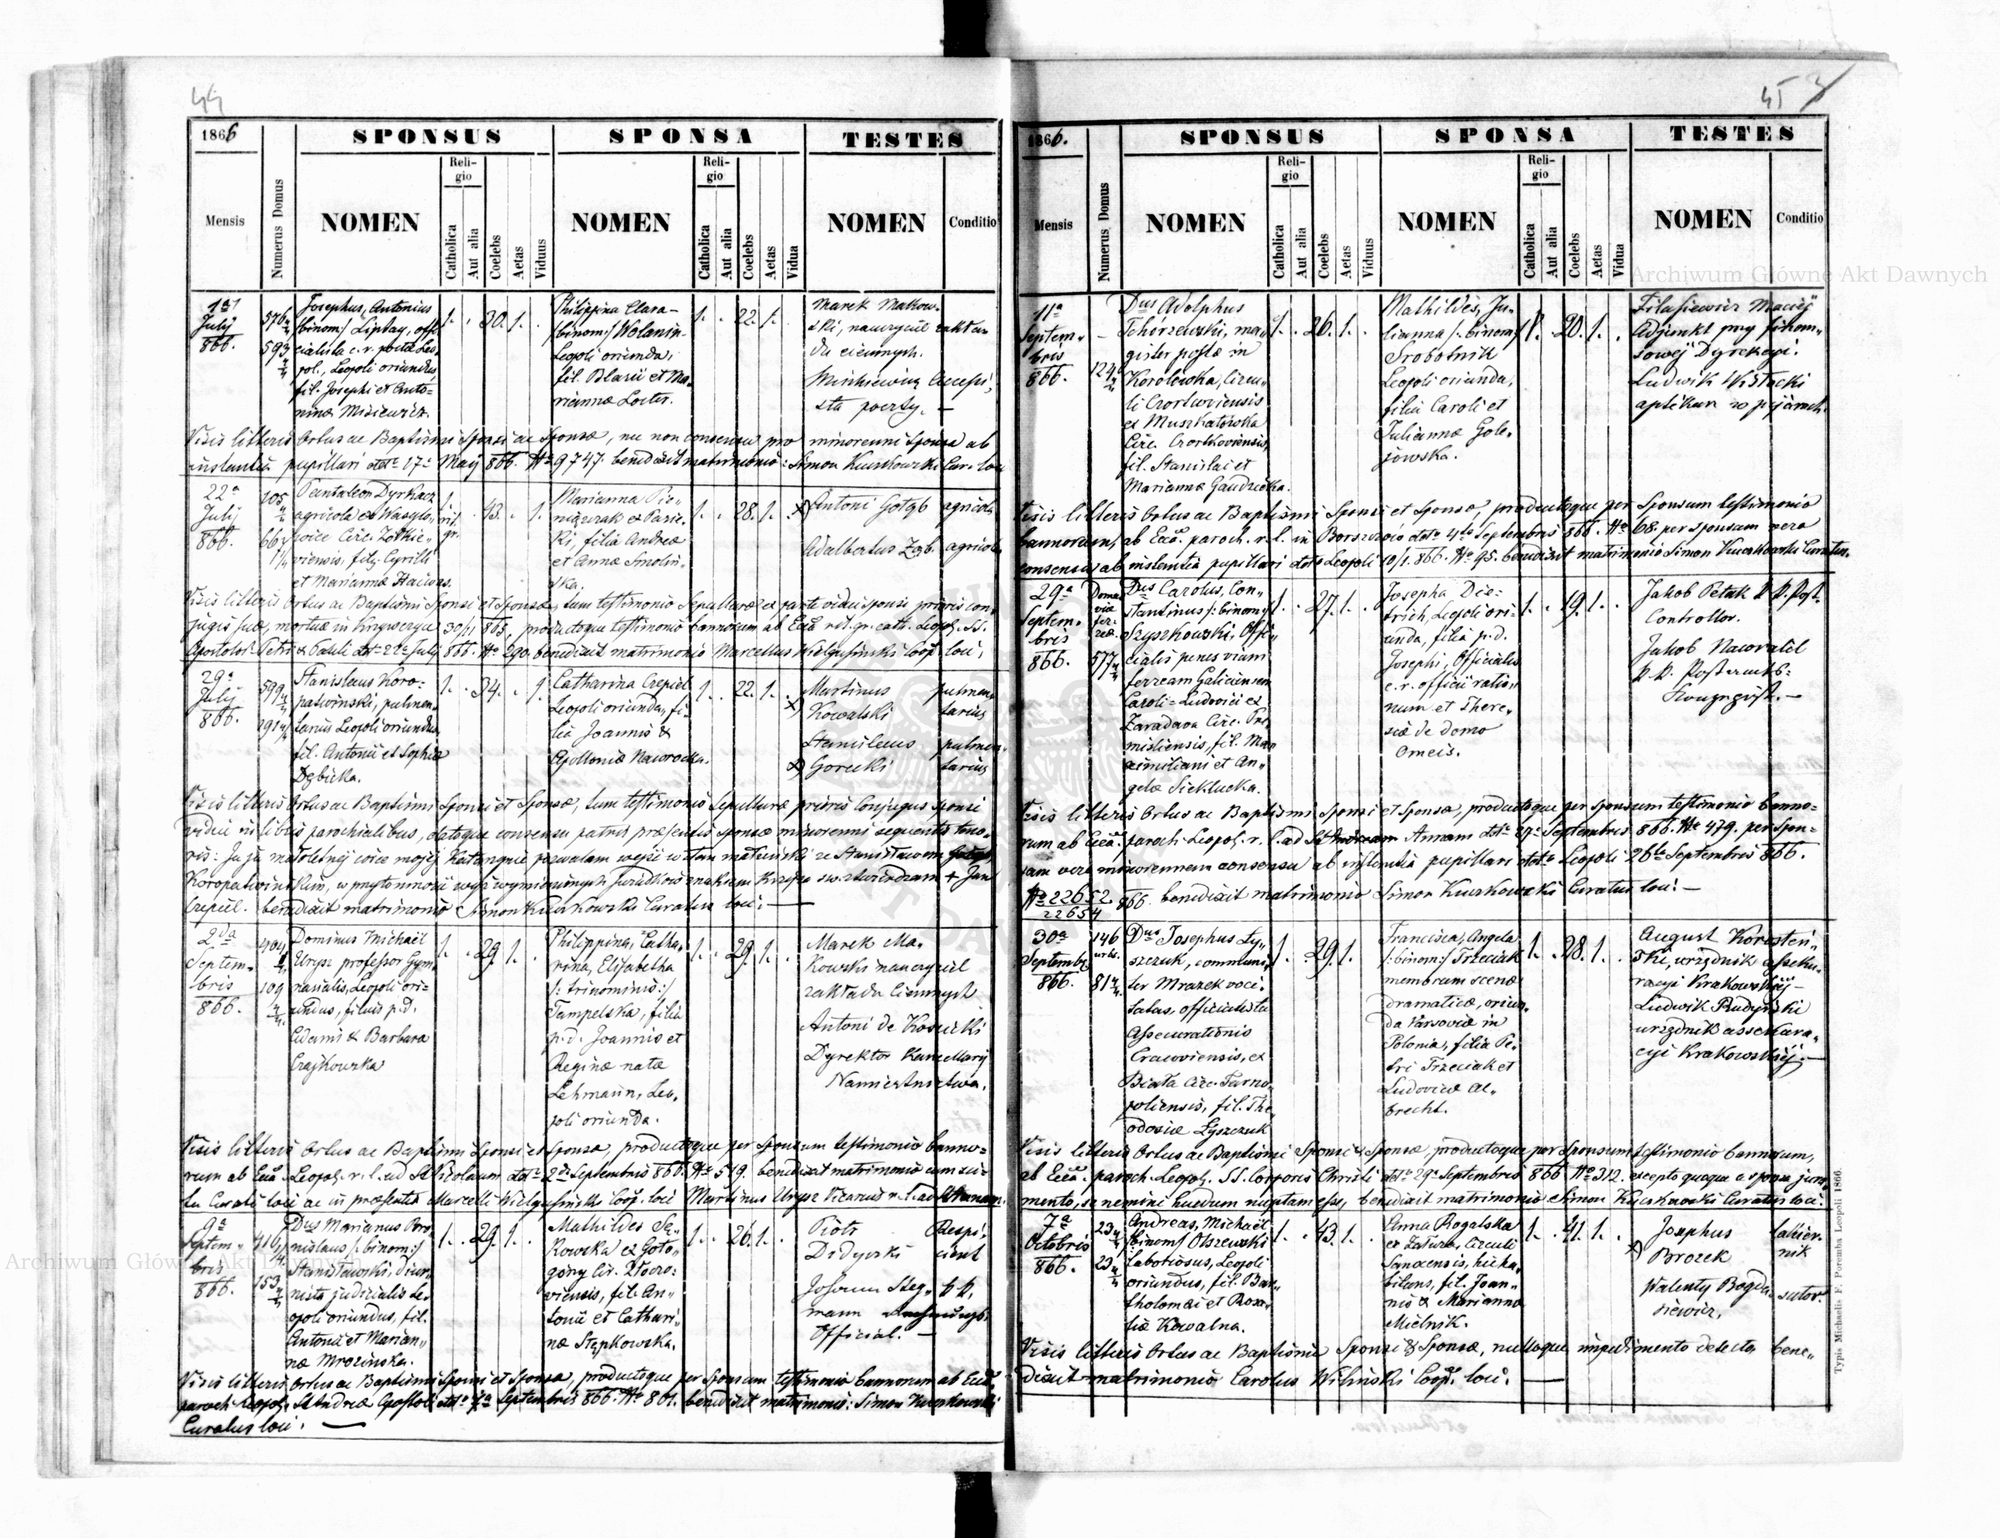 44
1866
SPONSUS
SPONSA
TESTES
Mensis
Numerus Domus
NOMEN
Religio
Catholica
Aut alia
Coelebs
Aetas
Viduus
NOMEN
Religio
Catholica
Aut alia
Coelebs
Aetas
Vidua
NOMEN
Conditio
1a
July
866.
576
593
Josephus, Antonius
/binom:/ Liptay, offi-
cialista c. r. postae Leo-
pol., Leopoli oriundus
fil. Josephi et Anto-
ninae Misiewicz.
1. . 30. 1. .
Philippina Clara
/binom:/ Wolanin
Leopoli oriunda,
fil. Blasii et Ma-
riannae Loeter.
1. . 22. 1. .
Marek Makow-
ski, nauczyciel zakła-
du ciemnych.
Minkiewicz
poczty. —
Visis litteris Ortus ac Baptismi Sponsi ac Sponsae, nec non consensu pro minorenni Sponsa ab
instantia pupillari dto 17a Maij 866. No 9747. benedixit matrimonio: Simon Kuczkowski Cur. loci
22a
July
866.
105
66
Pantaleon Dyrkacz
agricola ex Wasylo-
wice Circ. Żołkie-
viensis, fil. Cyrilli
et Mariannae
1. rit. gr. . 43. . 1.
Marianna Pie-
niążrak ex Pasie-
ki, filia Andreae
et Annae Smolin-
ska.
1. . 28. 1. .
Antoni Gołąb agricola
Adalbertus Ząb. agricola
Visis litteris Ortus ac Baptismi Sponsi et Sponsae, tum testimonio Sepulturae ex parte vidui sponsi prioris con-
jugis suae, mortuae in Krzywczyce 30/11 865, productoque testimonio bannorum ab Eccla rit. gr. cath. Leopol. SS.
Apostolor. Petri & Pauli dto 22a July 866. No 290. benedixit matrimonio Marcellus Coop. loci.
29a
July
866.
599
291
Stanislaus Koro-
patwinski, pulmen-
tarius Leopoli oriundus,
fil. Antonii et Sophiae
Dębicka.
1. . 34. . 1.
Catharina Czepiel
Leopoli oriunda, fi-
lia Joannis &
Apolloniae Nawrocka.
1. . 22. 1. .
Martinus pulmen-
Kowalski tarius
Stanislaus pulmen-
Gorecki tarius
Visis litteris Ortus ac Baptismi Sponsi et Sponsae, tum testimonio Sepulturae prioris Conjugis sponsi
vidui in libris parochialibus, datoque consensu patris praesentis sponsae minorenni sequentis teno-
ris: Ja ju małoletniej córce mojej Katarzynie pozwalam wejść w stan małżeński ze Stanisławem
Koropatwińskim, w przytomności wyż wymienionych świadków znakiem Krzyża św. stwierdzam + Jan
Czepiel. benedixit matrimonio Simon Kuczkowski Curatus loci. —
2da
Septem-
bris
866.
404
109
Dominus Michaël
Urysz professor Gym-
nasialis, Leopoli ori-
undus, filius p. d.
Adami & Barbara
Czajkowska
1. . 29. 1. .
Philippina, Catha-
rina, Elisabetha
/: trinominis:/
Tampelska, filia
p. d. Joannis et
Reginae natae
Lehmann, Leo-
poli oriunda.
1. . 29. 1. .
Marek Ma-
kowski nauczyciel
zakładu Ciemnych
Antoni de Kosiecki
Dyrektor Kancellarij
Namiestnictwa.
Visis litteris Ortus ac Baptismi Sponsi et Sponsae, productoque per Sponsum testimonio banno-
rum ab Eccla Leopol. r. l. ad St Nicolaum dto 2da Septembris 866. No 549. benedixit matrimonio cum sci-
tu Curati loci ac in praesentia Marcelli Coop. loci Martinus Urysz Vicarius r. l. ad
9a
Septem-
bris
866.
416
153
Dus Marianus Bro-
nislaus /: binom:/
Stanisławski, diur-
nista judicialis Le-
opoli oriundus, fil.
Antonii et Marian-
nae Mrozinska.
1. . 29. 1. .
Mathildes Sa-
kowska ex Goło-
góry Cir. Złoczo-
viensis, fil. An-
tonii et Cathari-
nae Stępkowska.
1. . 26. 1. .
Piotr Respi-
Didyński cient
Johann Steg- k. k.
mann
Official. —
Visis litteris Ortus ac Baptismi Sponsi et Sponsae, productoque per Sponsum testimonio bannorum ab Eccla
paroch. Leopol. St Andreae Apostoli dto 7a Septembris 866. No 801. benedixit matrimonio: Simon Kuczkowski
Curatus loci. —
45
1866.
SPONSUS
SPONSA
TESTES
Mensis
Numerus Domus
NOMEN
Religio
Catholica
Aut alia
Coelebs
Aetas
Viduus
NOMEN
Religio
Catholica
Aut alia
Coelebs
Aetas
Vidua
NOMEN
Conditio
11a
Septem-
bris
866.
124
Dus Adolphus
Tchórzewski, ma-
gister postae in
Korolówka, Circu-
li Czortkoviensis
ex Muszkatówka
Circ. Czortkoviensis,
fil. Stanislai et
Mariannae Gaudzicka.
1. . 26. 1. .
Mathildes, Ju-
lianna /: binom:/
Srobotnik
Leopoli oriunda,
filia Caroli et
Juliannae Gole-
jowska.
1. . 20. 1. .
Filasiewicz Maciej
Adjunkt przy
Dyrekcyi.
Ludwik
aptekarz
Visis litteris Ortus ac Baptismi Sponsi et Sponsae, productoque per Sponsum testimonio
bannorum, ab Eccla paroch. r. l. in Borszczów dto 4ta Septembris 866. No 68. per Sponsam vero
consensu ab instantia pupillari dto Leopoli 10/1. 866. No 95. benedixit matrimonio Simon Kuczkowski Curatus.
29a
Septem-
bris
866.
Domus
viae
fer-
reae.
577
Dus Carolus, Con-
stantinus /: binom:/
Szyszkowski, Offi-
cialis penes viam
ferream Galiciensem
Caroli-Ludovici ex
Zaradawa Circ. Pre-
misliensis, fil. Ma-
ximiliani et An-
gelae Sieklucka.
1. . 27. 1. .
Josepha Die-
trich, Leopoli ori-
unda, filia p. d.
Josephi, Officialis
c. r. officii ratio-
num et There-
siae de domo
Omeis.
1. . 19. 1. .
Jakob Petak k. k. Post-
Controllor.
Jakob Nawratil
k. k. Postamts-
—
Visis litteris Ortus ac Baptismi Sponsi et Sponsae, productoque per sponsum testimonio banno-
rum ab Eccla paroch. Leopol. r. l. ad St Annam dto 27a Septembris 866. No 479. per Spon-
sam vero minorennem consensu ab instantia pupillari dto Leopoli 26ta Septembris 866.
No 22652/22654 866. benedixit matrimonio Simon Kuczkowski Curatus loci. —
30a
Septembr.
866.
146
urb.
81
Dus Josephus Ły-
szczuk, communi-
ter Mrazek voci-
tatus, officialista
Assecurationis
Cracoviensis, ex
Biała Circ. Tarno-
poliensis, fil. The-
odosiae Łyszczuk
1. . 29. 1. .
Francisca, Angela
/: binom:/ Trzeciak
membrum scenae
dramaticae, oriun-
da Varsoviae in
Polonia, filia Pe-
tri Trzeciak et
Ludovicae Al-
brecht.
1. . 28. 1. .
August Korosteń-
ski, urzędnik asseku-
racyi Krakowskiej —
Ludwik Rudyński
urzędnik assekura-
cyi Krakowskiej. —
Visis litteris Ortus ac Baptismi Sponsi & Sponsae, productoque per Sponsum testimonio bannorum,
ab Eccla paroch. Leopol. SS. Corporis Christi dto 29a Septembris 866 No 312. excepto quoque a sponsa jura-
mento, se nemini huedum nuptam esse, benedixit matrimonio Simon Kuczkowski Curatus loci.
7a
Octobris
866.
23
23
Andreas, Michaël
/binom:/ Olszewski
laboriosus, Leopoli
oriundus, fil. Bar-
tholomaei et Rosa-
liae Kowalna.
1. . 43. 1. .
Anna Rogalska
ex Zatura, Circuli
Sanocensis,
fil. Joan-
nis & Marianna
Mielnik.
1. . 41. 1. .
Josephus
Brożek
Walenty Bogda- sutor
siewicz.
Visis litteris Ortus ac Baptismi Sponsi & Sponsae, nulloque impedimento detecto bene-
dixit matrimonio Carolus Wiliński Coop. loci. —
Typis Michaelis F. Poremba Leopoli 1866.
Archiwum Główne Akt Dawnych
Archiwum Główne Akt Dawnych